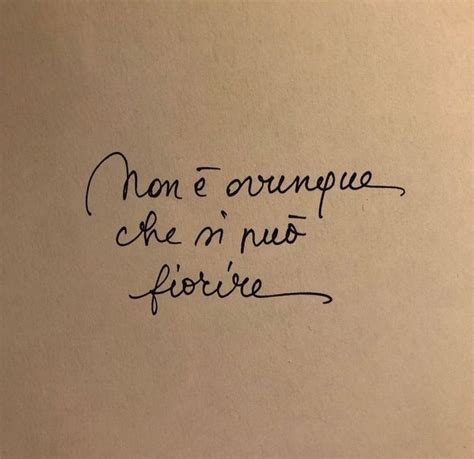 Non è ovunque
che si può
fiorire